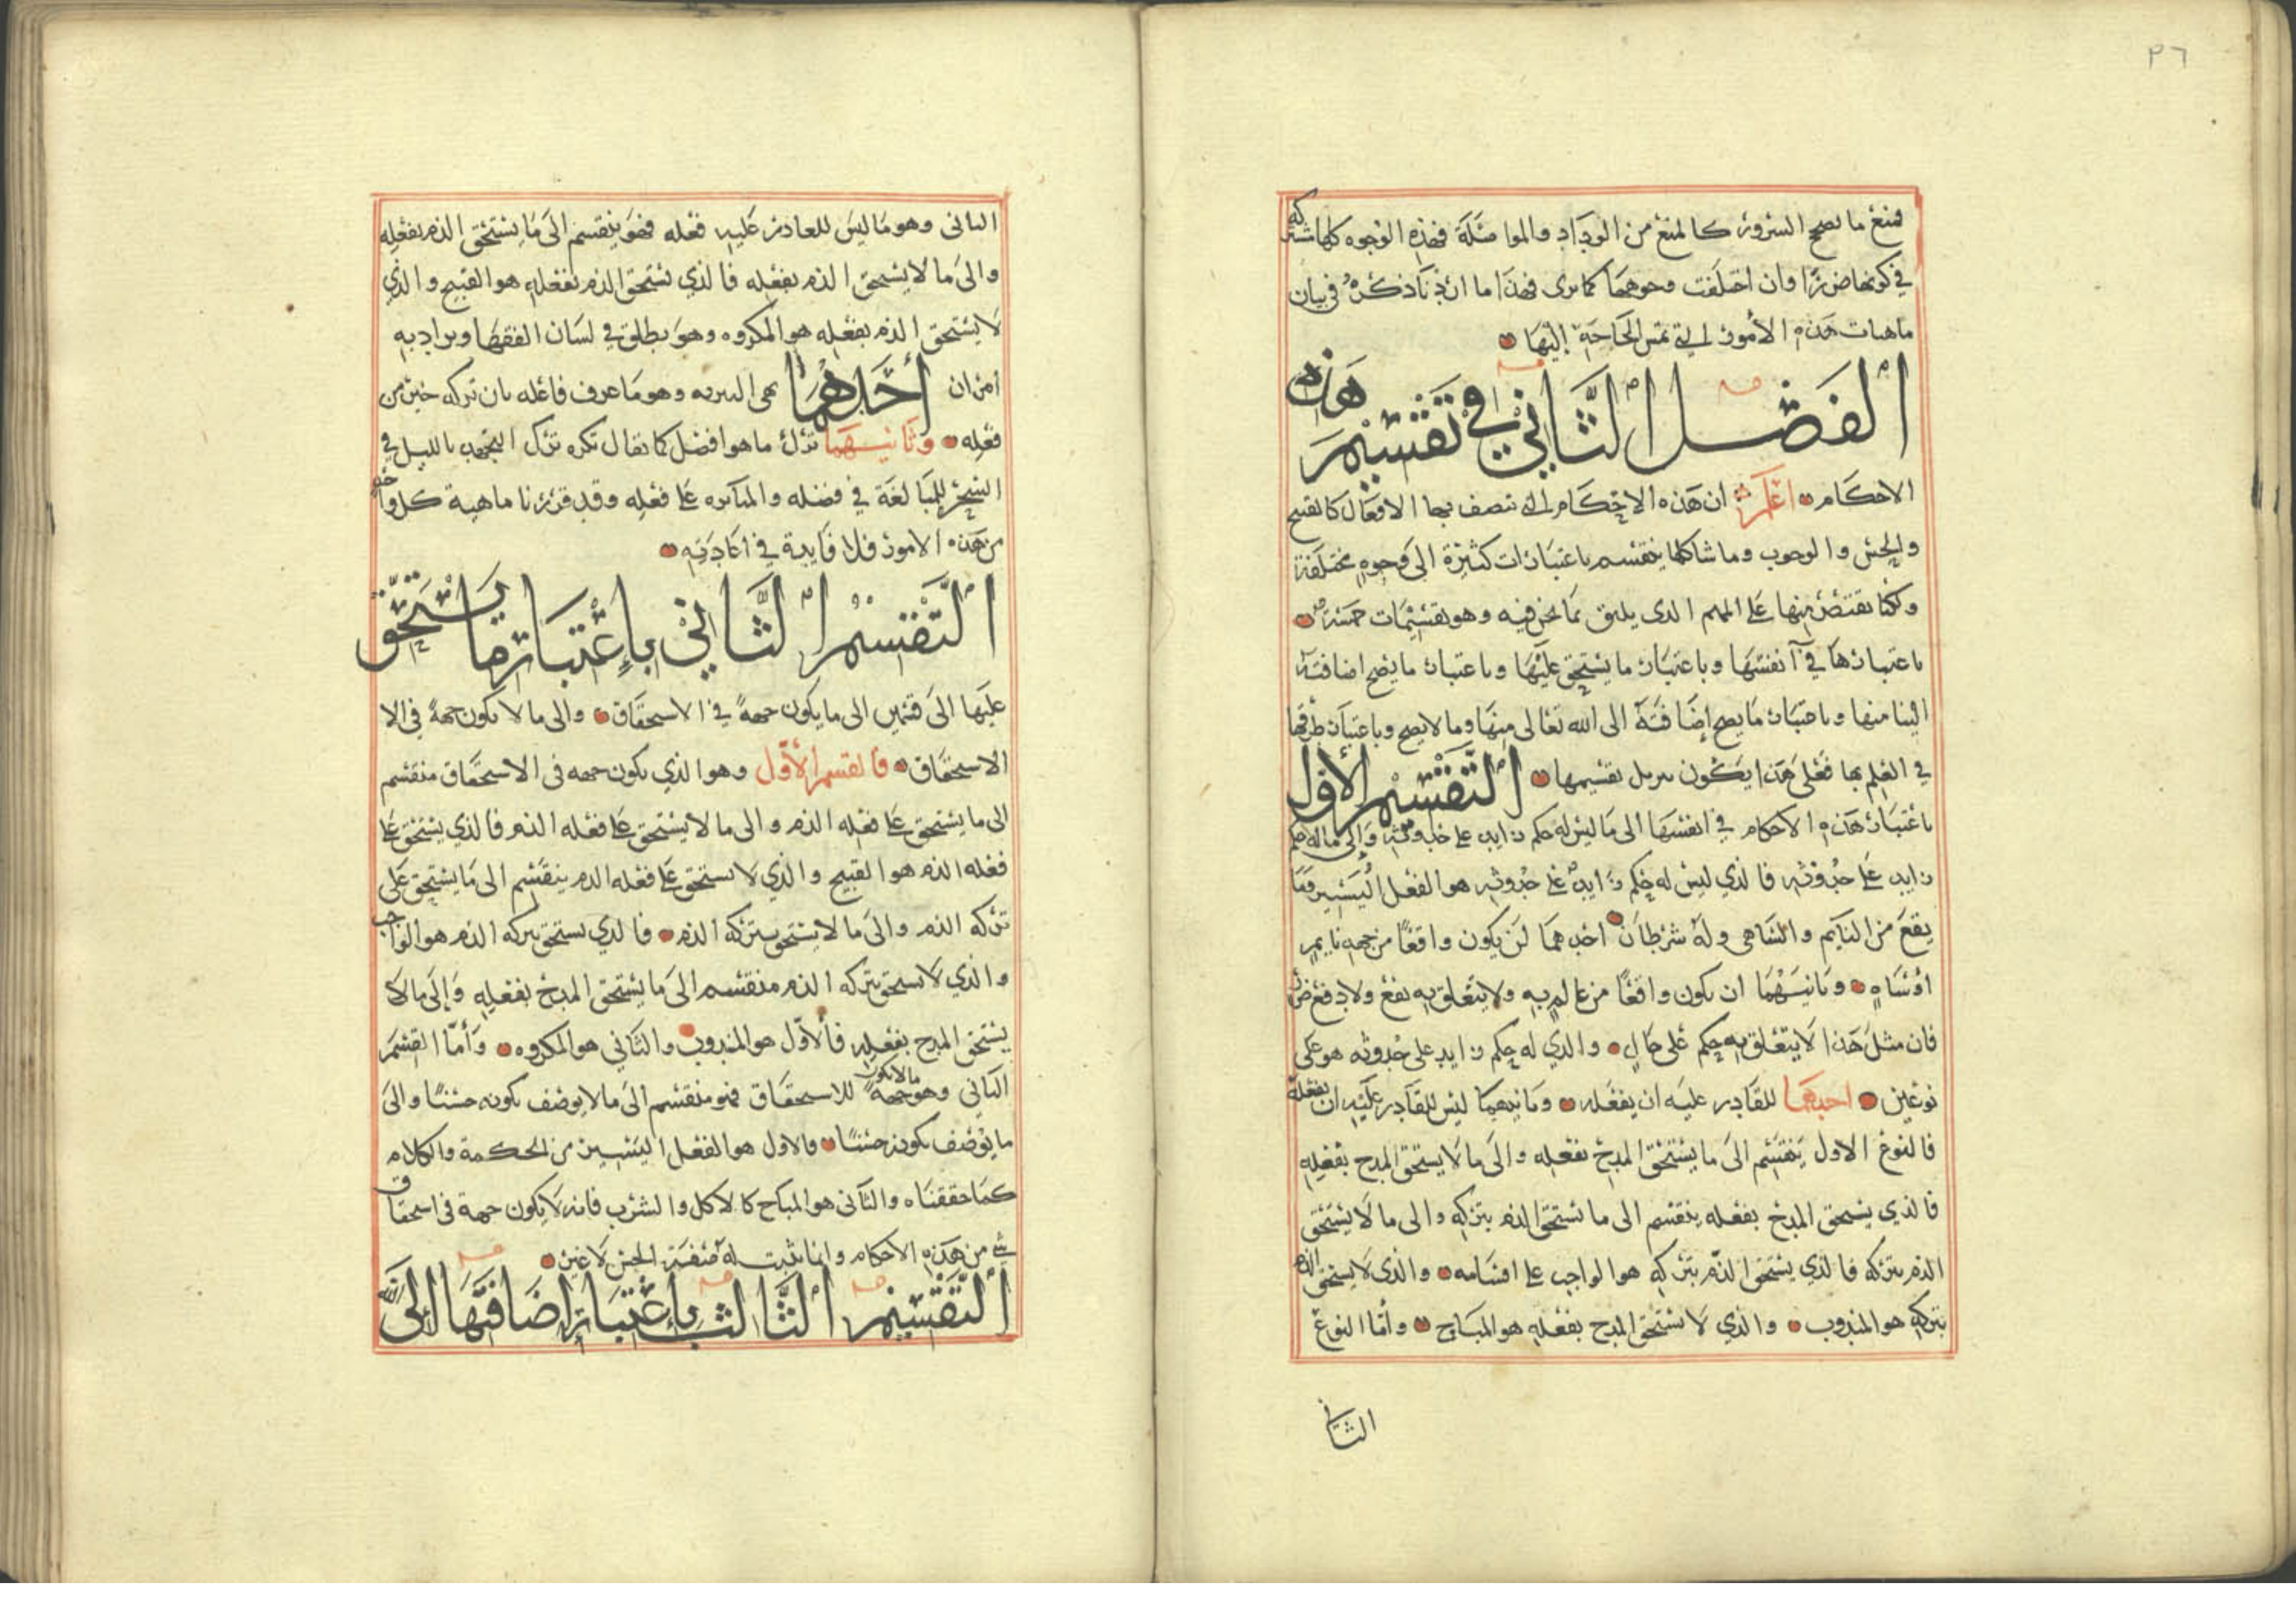 ٣٦
فمنع ما يصح السرور كالمنع من الوداد والمواصلة فهذه الوجوه كلها مشتركه
في كونها ضررا وان اختلفت وجوهها كما ترى فهذا ما اردنا ذكره في بيان
ماهيات هذه الأمور التي تمس الحاجة إليها
الفصل الثاني في تقسيم هذه
الاحكام اعلم ان هذه الاحكام التي تتصف بها الافعال كالقبح
والحسن والوجوب وما شاكلها ينقسم باعتبارات كثيرة الى وجوه مختلفة
ولكنا نقتصر منها على المهم الذي يليق بما نحن فيه وهو تقسيمات خمسة
باعتبارها في أنفسها وباعتبار ما يستحق عليها وباعتبار ما يصح اضافته
الينا منها وباعتبار ما يصح إضافته الى الله تعالى منها وما لا يصح وباعتبار طرقها
في العلم بها فعلى هذا يكون تنزيل تقسيمها التقسيم الأول
باعتبار هذه الاحكام في انفسها الى ما ليس له حكم زايد على حدوثه وإلى ما له حكم
زايد على حدوثه فالذي ليس له حكم زايد على حدوثه هو الفعل اليسير مما
يقع من النايم والساهي وله شرطان احدهما ان يكون واقعا من جهة نايم
او ساه وثانيهما ان يكون واقعا من عالم به ولا يتعلق به نفع ولا دفع ضرر
فان مثل هذا لا يتعلق به حكم على حال والذي له حكم زايد على حدوثه هو على
نوعين احدهما للقادر عليه ان يفعله وثانيهما ليس للقادر عليه ان يفعله
فالنوع الاول ينقسم الى ما يستحق المدح بفعله والى ما لا يستحق المدح بفعله
فالذي يستحق المدح بفعله ينقسم الى ما يستحق الذم بتركه والى ما لا يستحق
الذم بتركه فالذي يستحق الذم بتركه هو الواجب على اقسامه والذي لا يستحق الذم
بتركه هو المندوب والذي لا يستحق المدح بفعله هو المباح وأما النوع
الثاني
الثاني وهو ما ليس للقادر عليه فعله فهو ينقسم الى ما يستحق الذم بفعله
والى ما لا يستحق الذم بفعله فالذي يستحق الذم بفعله هو القبيح والذي
لا يستحق الذم بفعله هو المكروه وهو يطلق في لسان الفقهاء ويراد به
أمران أحدهما نهي التنزيه وهو ما عرف فاعله بان تركه خير من
فعله وثانيهما ترك ما هو افضل كما يقال تكره ترك التهجد بالليل في
السحر للمبالغة في فضله والمثابره على فعله وقد قررنا ماهية كل واحد
من هذه الامور فلا فايدة في اعادته
التقسيم الثاني باعتبار ما يستحق
عليها الى قسمين الى ما يكون جهة في الاستحقاق والى ما لا يكون جهة في الا
الاستحقاق فالقسم الأول وهو الذي يكون جهه في الاستحقاق منقسم
الى ما يستحق على فعله الذم والى ما لا يستحق على فعله الذم فالذي يستحق على
فعله الذم هو القبيح والذي لا يستحق على فعله الذم ينقسم الى ما يستحق على
تركه الذم والى ما لا يستحق بتركه الذم فالذي يستحق بتركه الذم هو الواجب
والذي لا يستحق بتركه الذم منقسم الى ما يستحق المدح بفعله وإلى ما لا
يستحق المدح بفعله فالأول هو المندوب والثاني هو المكروه وأما القسم
الثاني وهو ما لا يكون جهة للاستحقاق فهو منقسم الى ما لا يوصف بكونه حسنا والى
ما يوصف بكونه حسنا والاول هو الفعل اليسير من الحكمة والكلام
كما حققناه والثاني هو المباح كالاكل والشرب فانه لا يكون جهة في استحقاق
شي من هذه الاحكام وانما يثبت له صفة الحسن لا غير
التقسيم الثالث باعتبار إضافتها الى الله